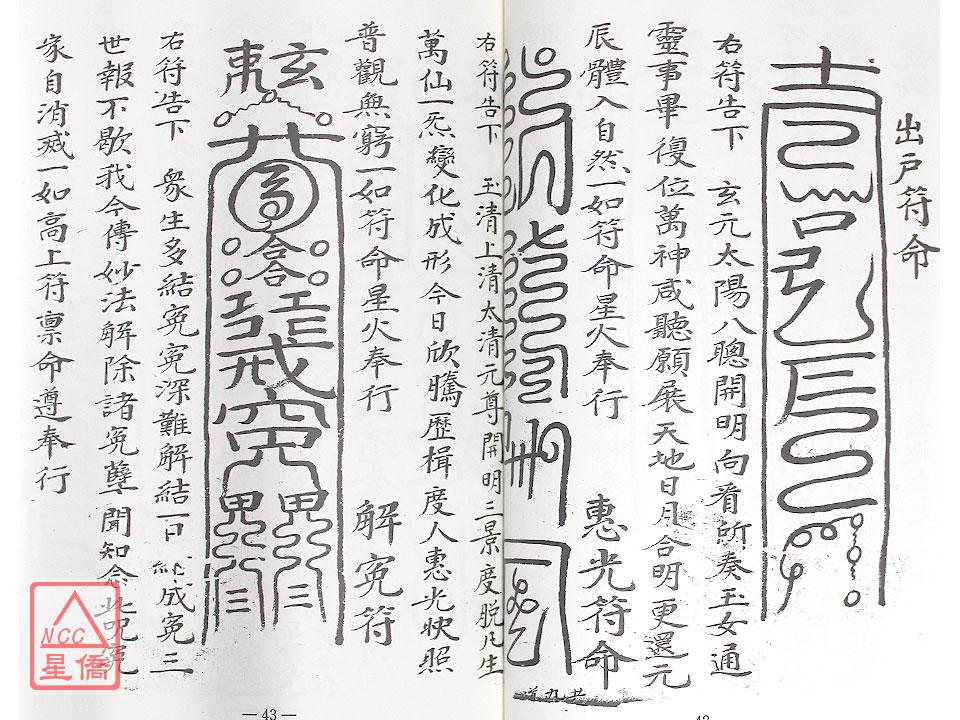 出戶符命
右符告下 玄元太陽八聰開明向看所奏玉女通
靈事畢復位萬神咸聽願展天地日月合明更還元
辰體入自然一如符命星火奉行
惠光符命
右符告下 玉清上清太清元尊開明三景度脫凡生
萬仙一炁變化成形今日欣騰歷楫度人惠光映照
普觀無窮一如符命星火奉行
解寃符
右符告下 眾生多結寃寃深難解結一日 成寃三
世報不歇我今傳妙法解除諸寃孽聞知念此咒寃
家自消滅一如高上符禀命遵奉行
NCC
星僑
— 43 —